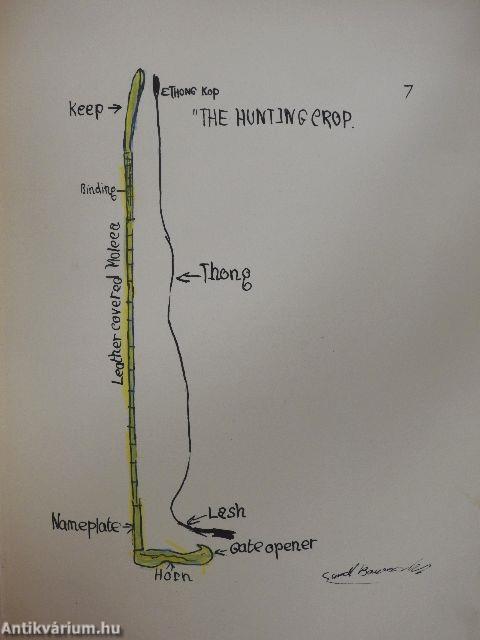 7
EThong Kop
"THE HUNTING CROP.
Keep
Binding
Leather covered Molecca
Thong
Lash
Nameplate
Gate opener
Horn
Antikvárium.hu